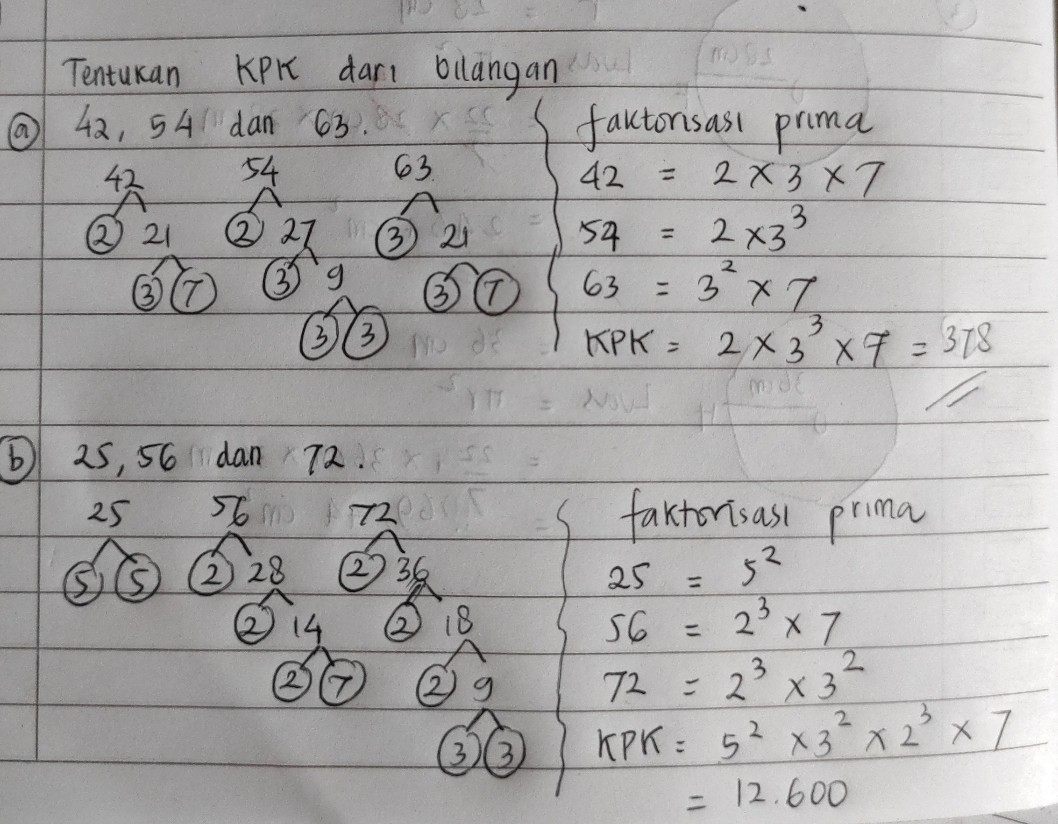 Tentukan KPK dari bilangan
a 42, 54 dan 63.
42 54 63
2 21 2 27 3 21
3 7 3 9 3 7
3 3
faktorisasi prima
42 = 2 x 3 x 7
54 = 2 x 3³
63 = 3² x 7
KPK = 2 x 3³ x 7 = 378
b 25, 56 dan 72.
25 56 72
5 5 2 28 2 36
2 14 2 18
2 7 2 9
3 3
faktorisasi prima
25 = 5²
56 = 2³ x 7
72 = 2³ x 3²
KPK = 5² x 3² x 2³ x 7
= 12.600